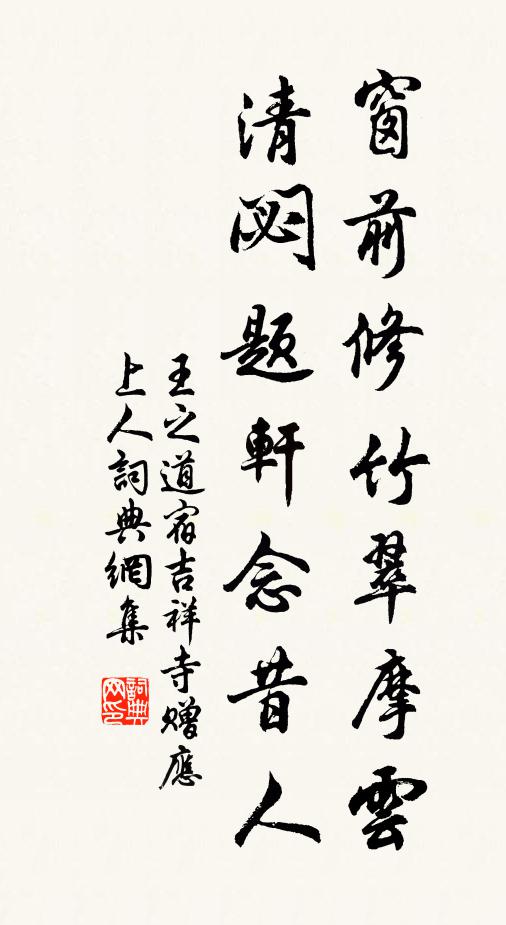 窗前修竹翠摩雲
清閟題軒念昔人
王之道宿吉祥寺贈應
上人詞典網集
詞典網印